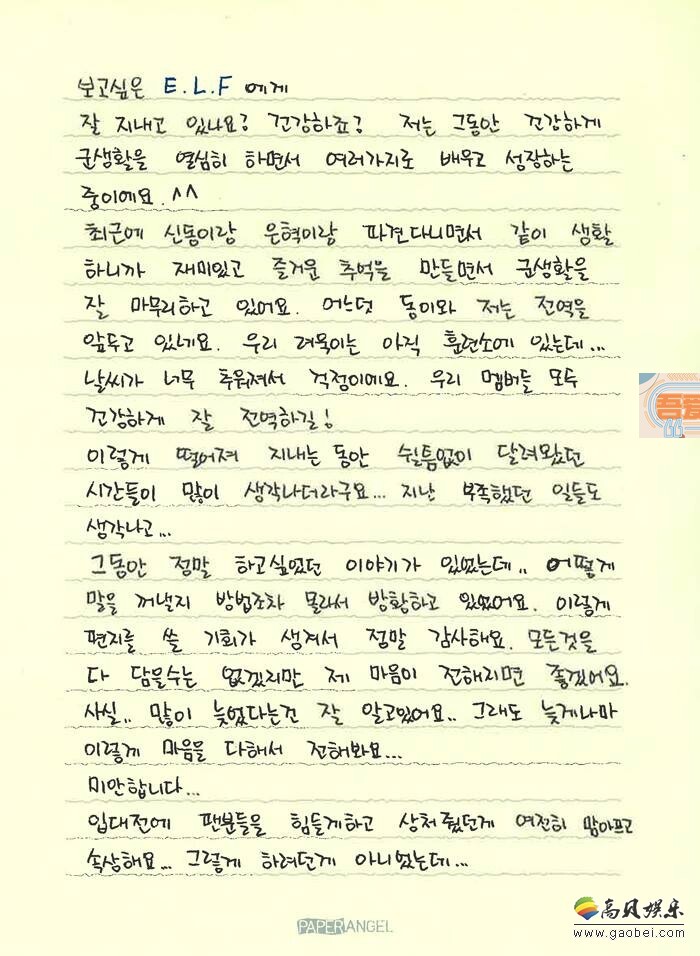 보고싶은 E.L.F 에게
잘 지내고 있나요? 건강하죠? 저는 그동안 건강하게
군생활을 열심히 하면서 여러가지로 배우고 성장하는
중이에요. ^^
최근에 신동이랑 은혁이랑 파견다니면서 같이 생활
하니까 재미있고 즐거운 추억을 만들면서 군생활을
잘 마무리하고 있어요. 어느덧 동이와 저는 전역을
앞두고 있네요. 우리 려욱이는 아직 훈련소에 있는데...
날씨가 너무 추워져서 걱정이에요. 우리 멤버들 모두
건강하게 잘 전역하길!
이렇게 떨어져 지내는 동안 쉴틈없이 달려왔던
시간들이 많이 생각나더라구요... 지난 부족했던 일들도
생각나고...
그동안 정말 하고싶었던 이야기가 있었는데.. 어떻게
말을 꺼낼지 방법조차 몰라서 방황하고 있었어요. 이렇게
편지를 쓸 기회가 생겨서 정말 감사해요. 모든것을
다 담을수는 없겠지만 제 마음이 전해리면 좋겠어요.
사실.. 많이 늦었다는건 잘 알고있어요.. 그래도 늦게나마
이렇게 마음을 다해서 전해봐요...
미안합니다...
입대전에 팬분들을 힘들게하고 상처줬던게 여전히 맘아프고
속상해요... 그렇게 하려던게 아니었는데...
PAPER ANGEL
吾爱
高贝娱乐
www.gaobei.com